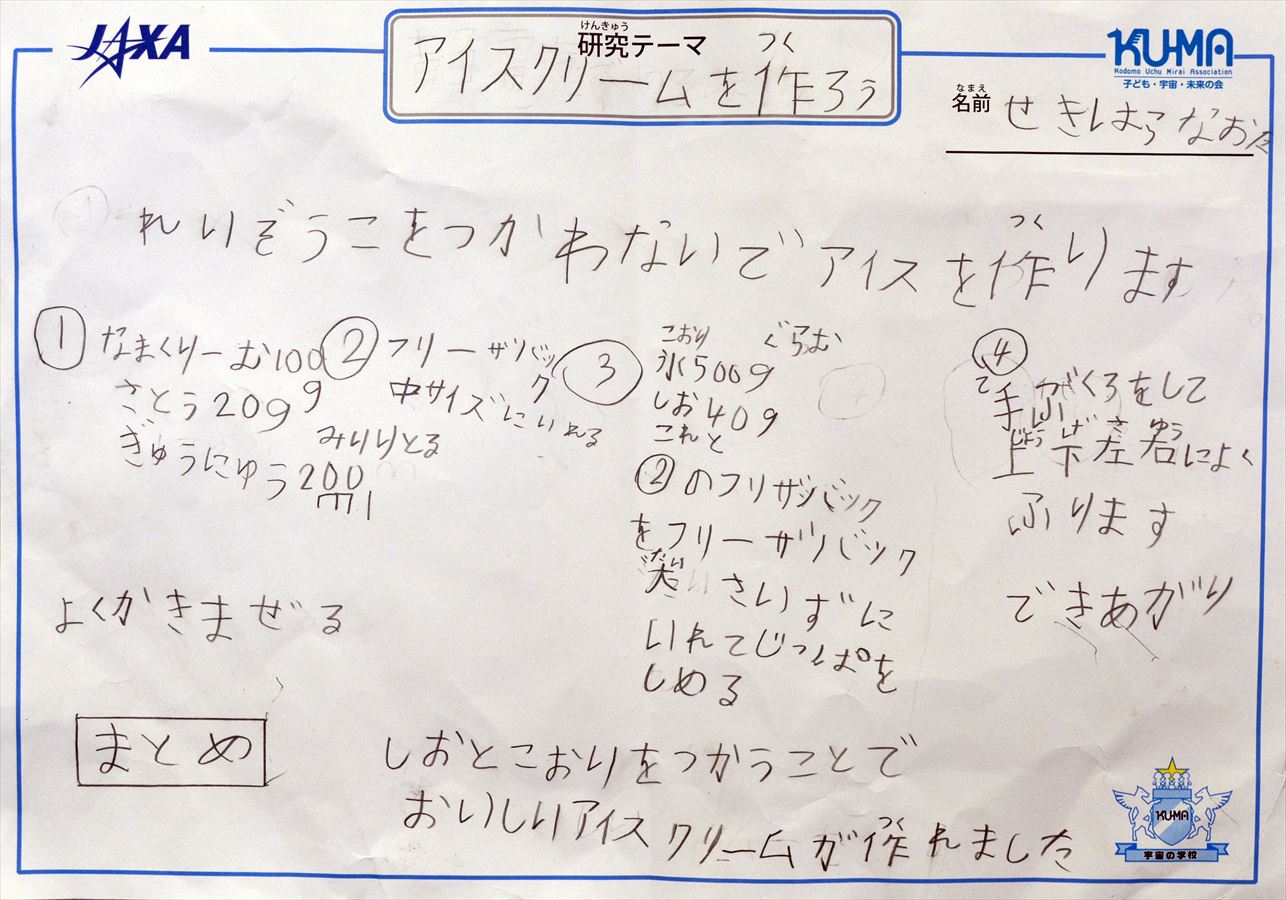 JAXA
けんきゅう
研究テーマ
つく
アイスクリームを作ろう
KU-MA
Kodomo Uchu Mirai Association
子ども・宇宙・未来の会
なまえ
名前
せきはらなおた
れいぞうこをつかわないでアイスを作ります
つく
① なまくりーむ100
g
さとう20g
ぎゅうにゅう200
みりりとる
ml
よくかきまぜる
② フリーザバッ
ク
中サイズにいれる
③
こおり ぐらむ
氷500g
しお40g
これと
②のフリザバック
をフリーザバック
だい
大いさいずに
いれてじっぱを
しめる
④
て
手ぶくろをして
じょう げ さ ゆう
上下左右によく
ふります
できあがり
まとめ
しおとこおりをつかうことで
つく
おいしいアイスクリームが作れました
KU-MA
宇宙の学校